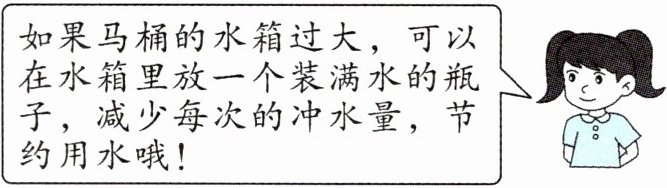 如果马桶的水箱过大，可以
在水箱里放一个装满水的瓶
子，减少每次的冲水量，节
约用水哦！